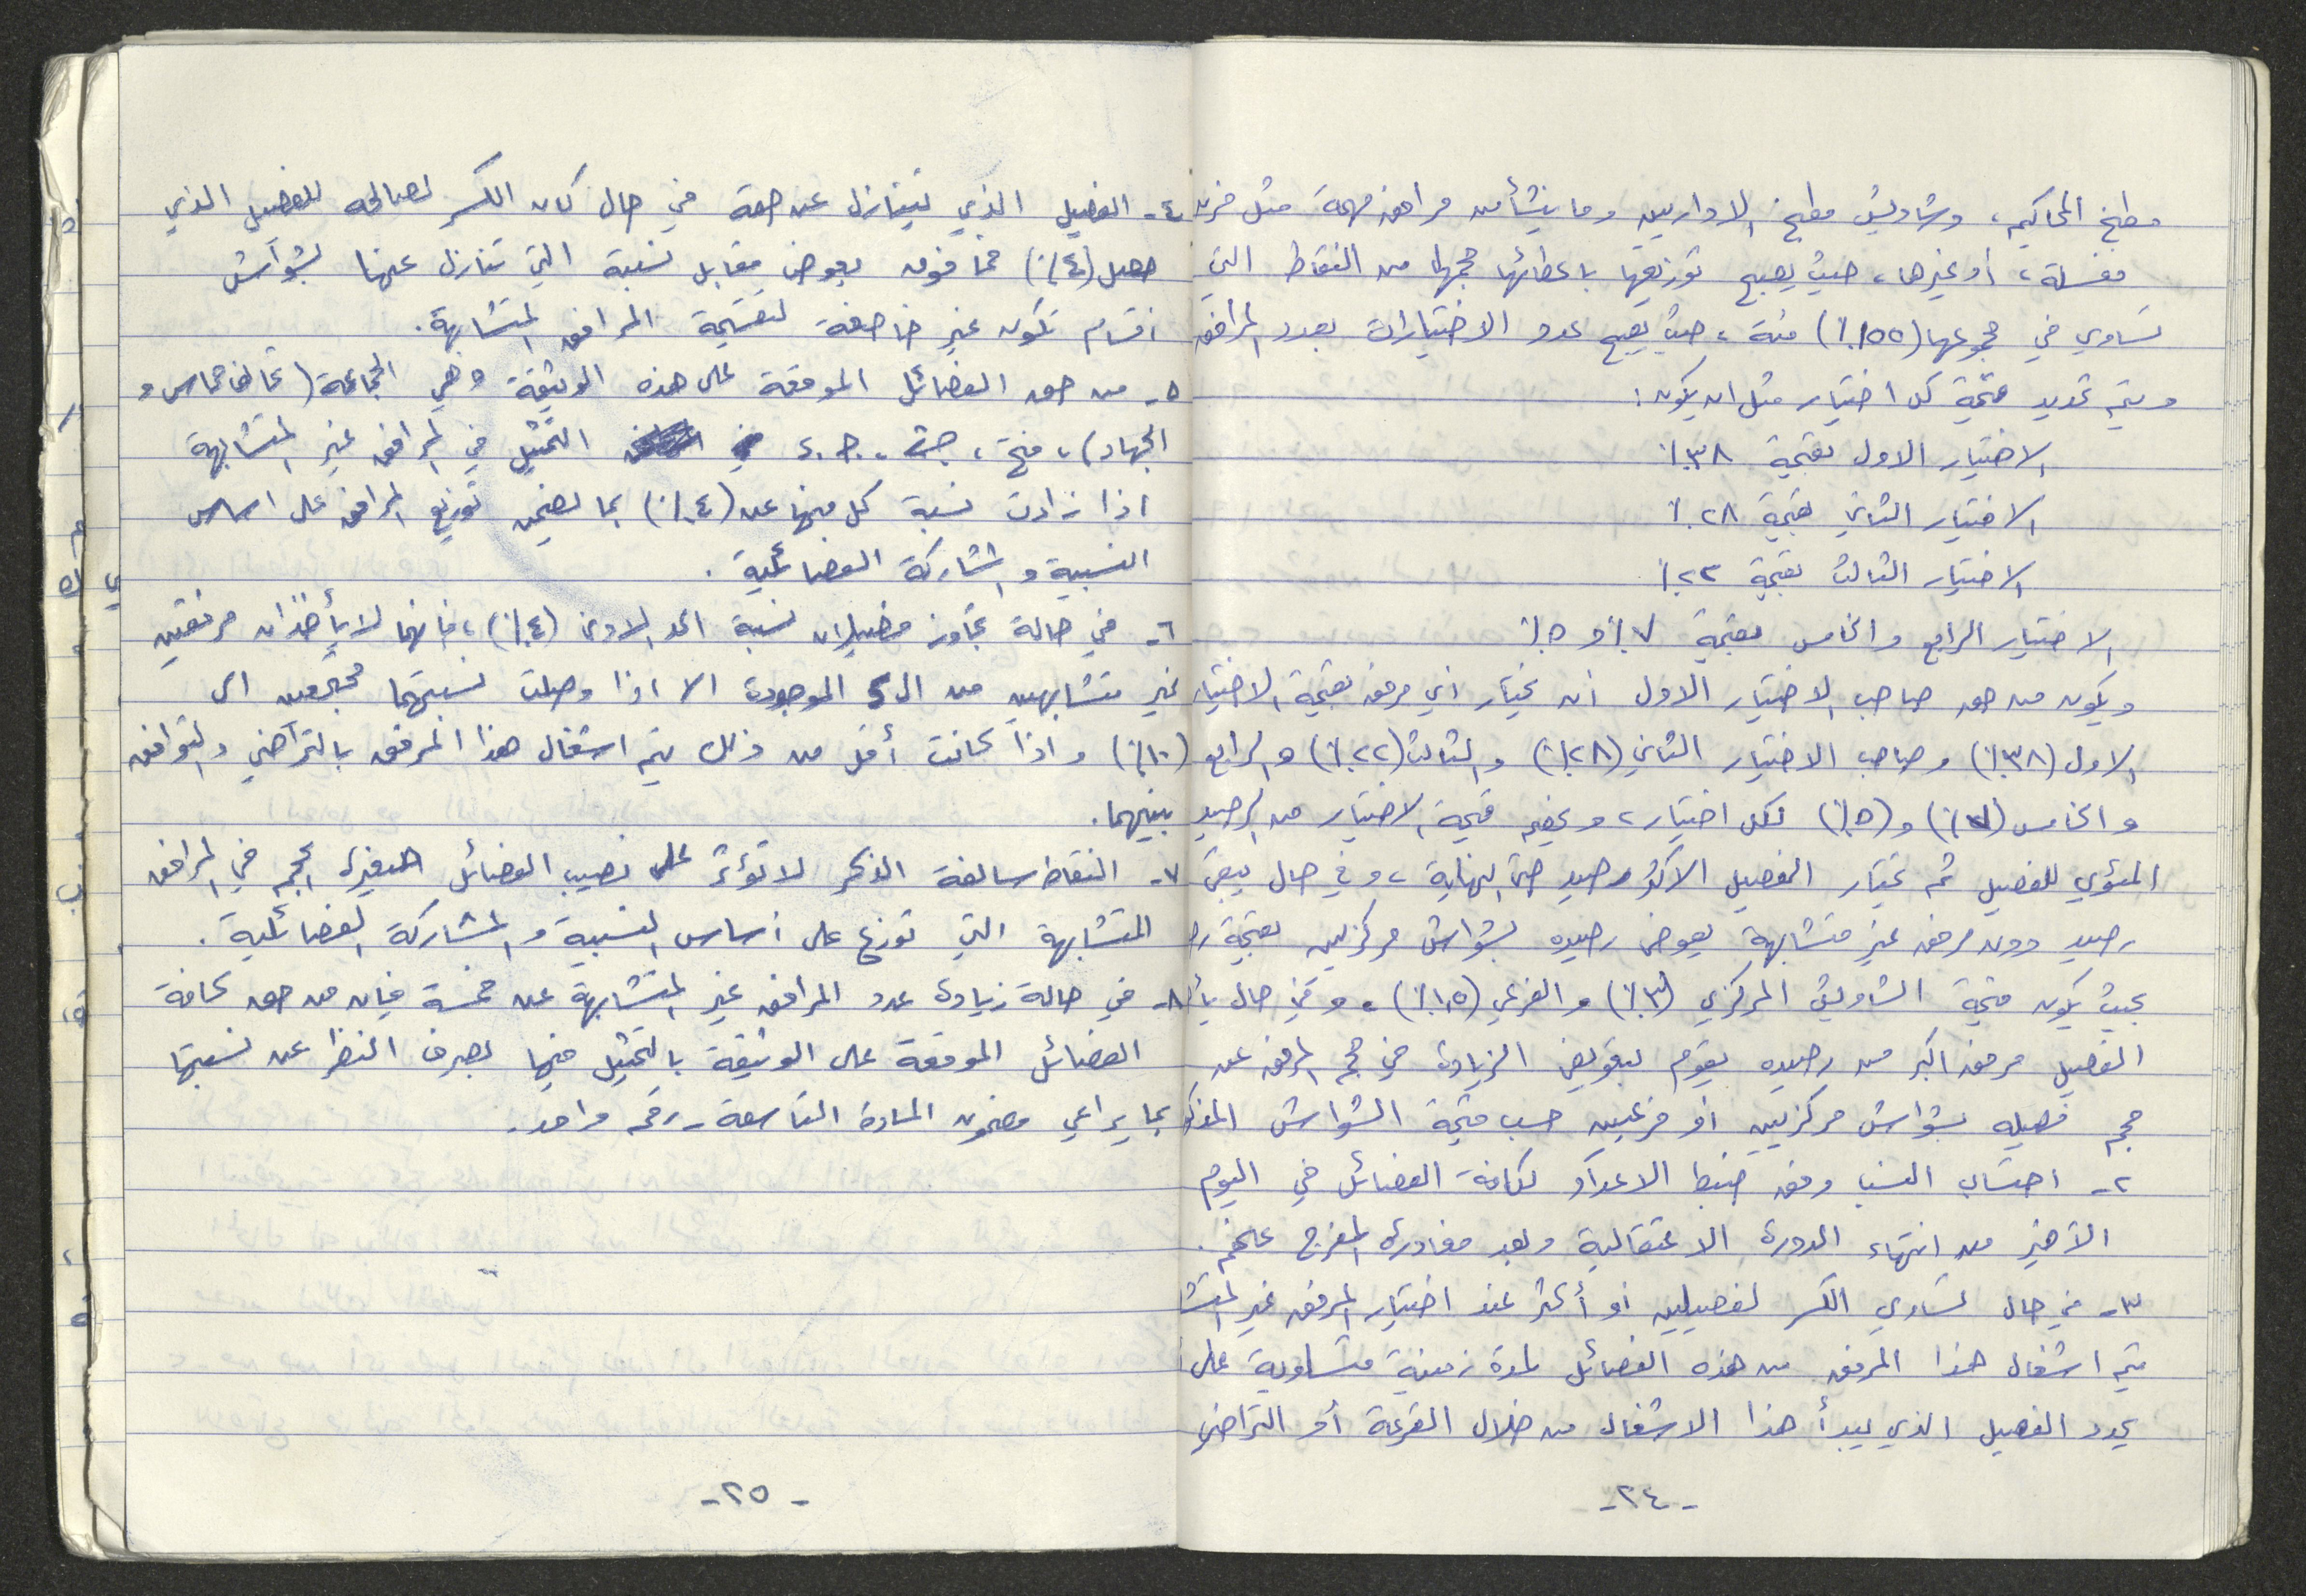 مطبخ المحاكيم، وشاويش مطبخ الاداريين وما ينشأ من مرافق مهمة مثل فرن
مغسلة، أو غيرها، حيث يصبح توزيعها باعطائها حجمها من النقاط التي
تساوي في مجموعها (١٥٥٪) مئة، حيث يصبح عدد الاختيارات بعدد المرافق
ويتم تحديد قيمة كل اختيار مثل ان يكون:
الاختيار الاول بقيمة ٣٨٪
الاختيار الثاني بقيمة ٢٨٪
الاختيار الثالث بقيمة ٢٢٪
الاختيار الرابع والخامس بقيمة ٧٪ و ٥٪
ويكون من حق صاحب الاختيار الاول ان يختار أي مرفق بقيمة الاختيار
الاول (٣٨٪) وصاحب الاختيار الثاني (٢٨٪) والثالث (٢٢٪) والرابع
والخامس (٧٪) و(٥٪) لكل اختيار، ويخصم قيمة الاختيار من الرصيد
المئوي للفصيل ثم يختار الفصيل الاكثر رصيد حتى النهاية، وفي حال يبقى
رصيد دون مرفق غير متشابهة يعوض رصيده بشواش مركزيين بقيمة
بحيث يكون قيمة الشاويش المركزي (٣٪) والفرعي (١،٥٪)، وفي حال
الفصيل مرفق اكبر من رصيده يقوم بتعويض الزيادة في حجم المرفق عن
حجم فصيله بشواش مركزيين أو فرعيين حسب قيمة الشواش
٢- احتساب النسب وفق ضبط الاعداد لكافة الفصائل في اليوم
الأخير من انتهاء الدورة الاعتقالية وبعد مغادرة المفرج عنهم.
٣- في حال تساوي الكسر لفصيلين أو أكثر عند اختيار المرفق غير
يتم اشغال هذا المرفق من هذه الفصائل لمدة زمنية متساوية على
يحدد الفصيل الذي يبدأ هذا الاشغال من خلال القرعة أو التراضي
-٢٤-
٤- الفصيل الذي يتنازل عن حقه في حال كان الكسر لصالحه للفصيل الذي
حصل (٤٪) فما فوق يعوض مقابل نسبة التي تنازل عنها بشواش
اقسام تكون غير خاضعة لتقسيمة المرافق المتشابهة.
٥- من حق الفصائل الموقعة على هذه الوثيقة وهي الجماعة (تحالف حماس و
الجهاد)، فتح، جـ.ش، جـ.د التمثيل في المرافق غير المتشابهة
اذا زادت نسبة كل منها عن (٤٪) بما يضمن توزيع المرافق على اساس
النسبية والمشاركة الفصائلية.
٦- في حالة تجاوز فصيلان نسبة الحد الادنى (٤٪)، فانهما لا يأخذان مرفقين
غير متشابهين من ال 5 الموجودة الا اذا وصلت نسبتهما مجتمعين الى
(١٠٪) واذا كانت أقل من ذلك يتم اشغال هذا المرفق بالتراضي والتوافق
بينهما.
٧- النقاط سالفة الذكر لا تؤثر على نصيب الفصائل صغيرة الحجم في المرافق
المتشابهة التي توزع على أساس النسبية والمشاركة الفصائلية.
٨- في حالة زيادة عدد المرافق غير المتشابهة عن خمسة فإن من حق كافة
الفصائل الموقعة على الوثيقة بالتمثيل فيها بصرف النظر عن نسبتها
بما يراعي مضمون المادة التاسعة - رقم واحد.
-٢٥-